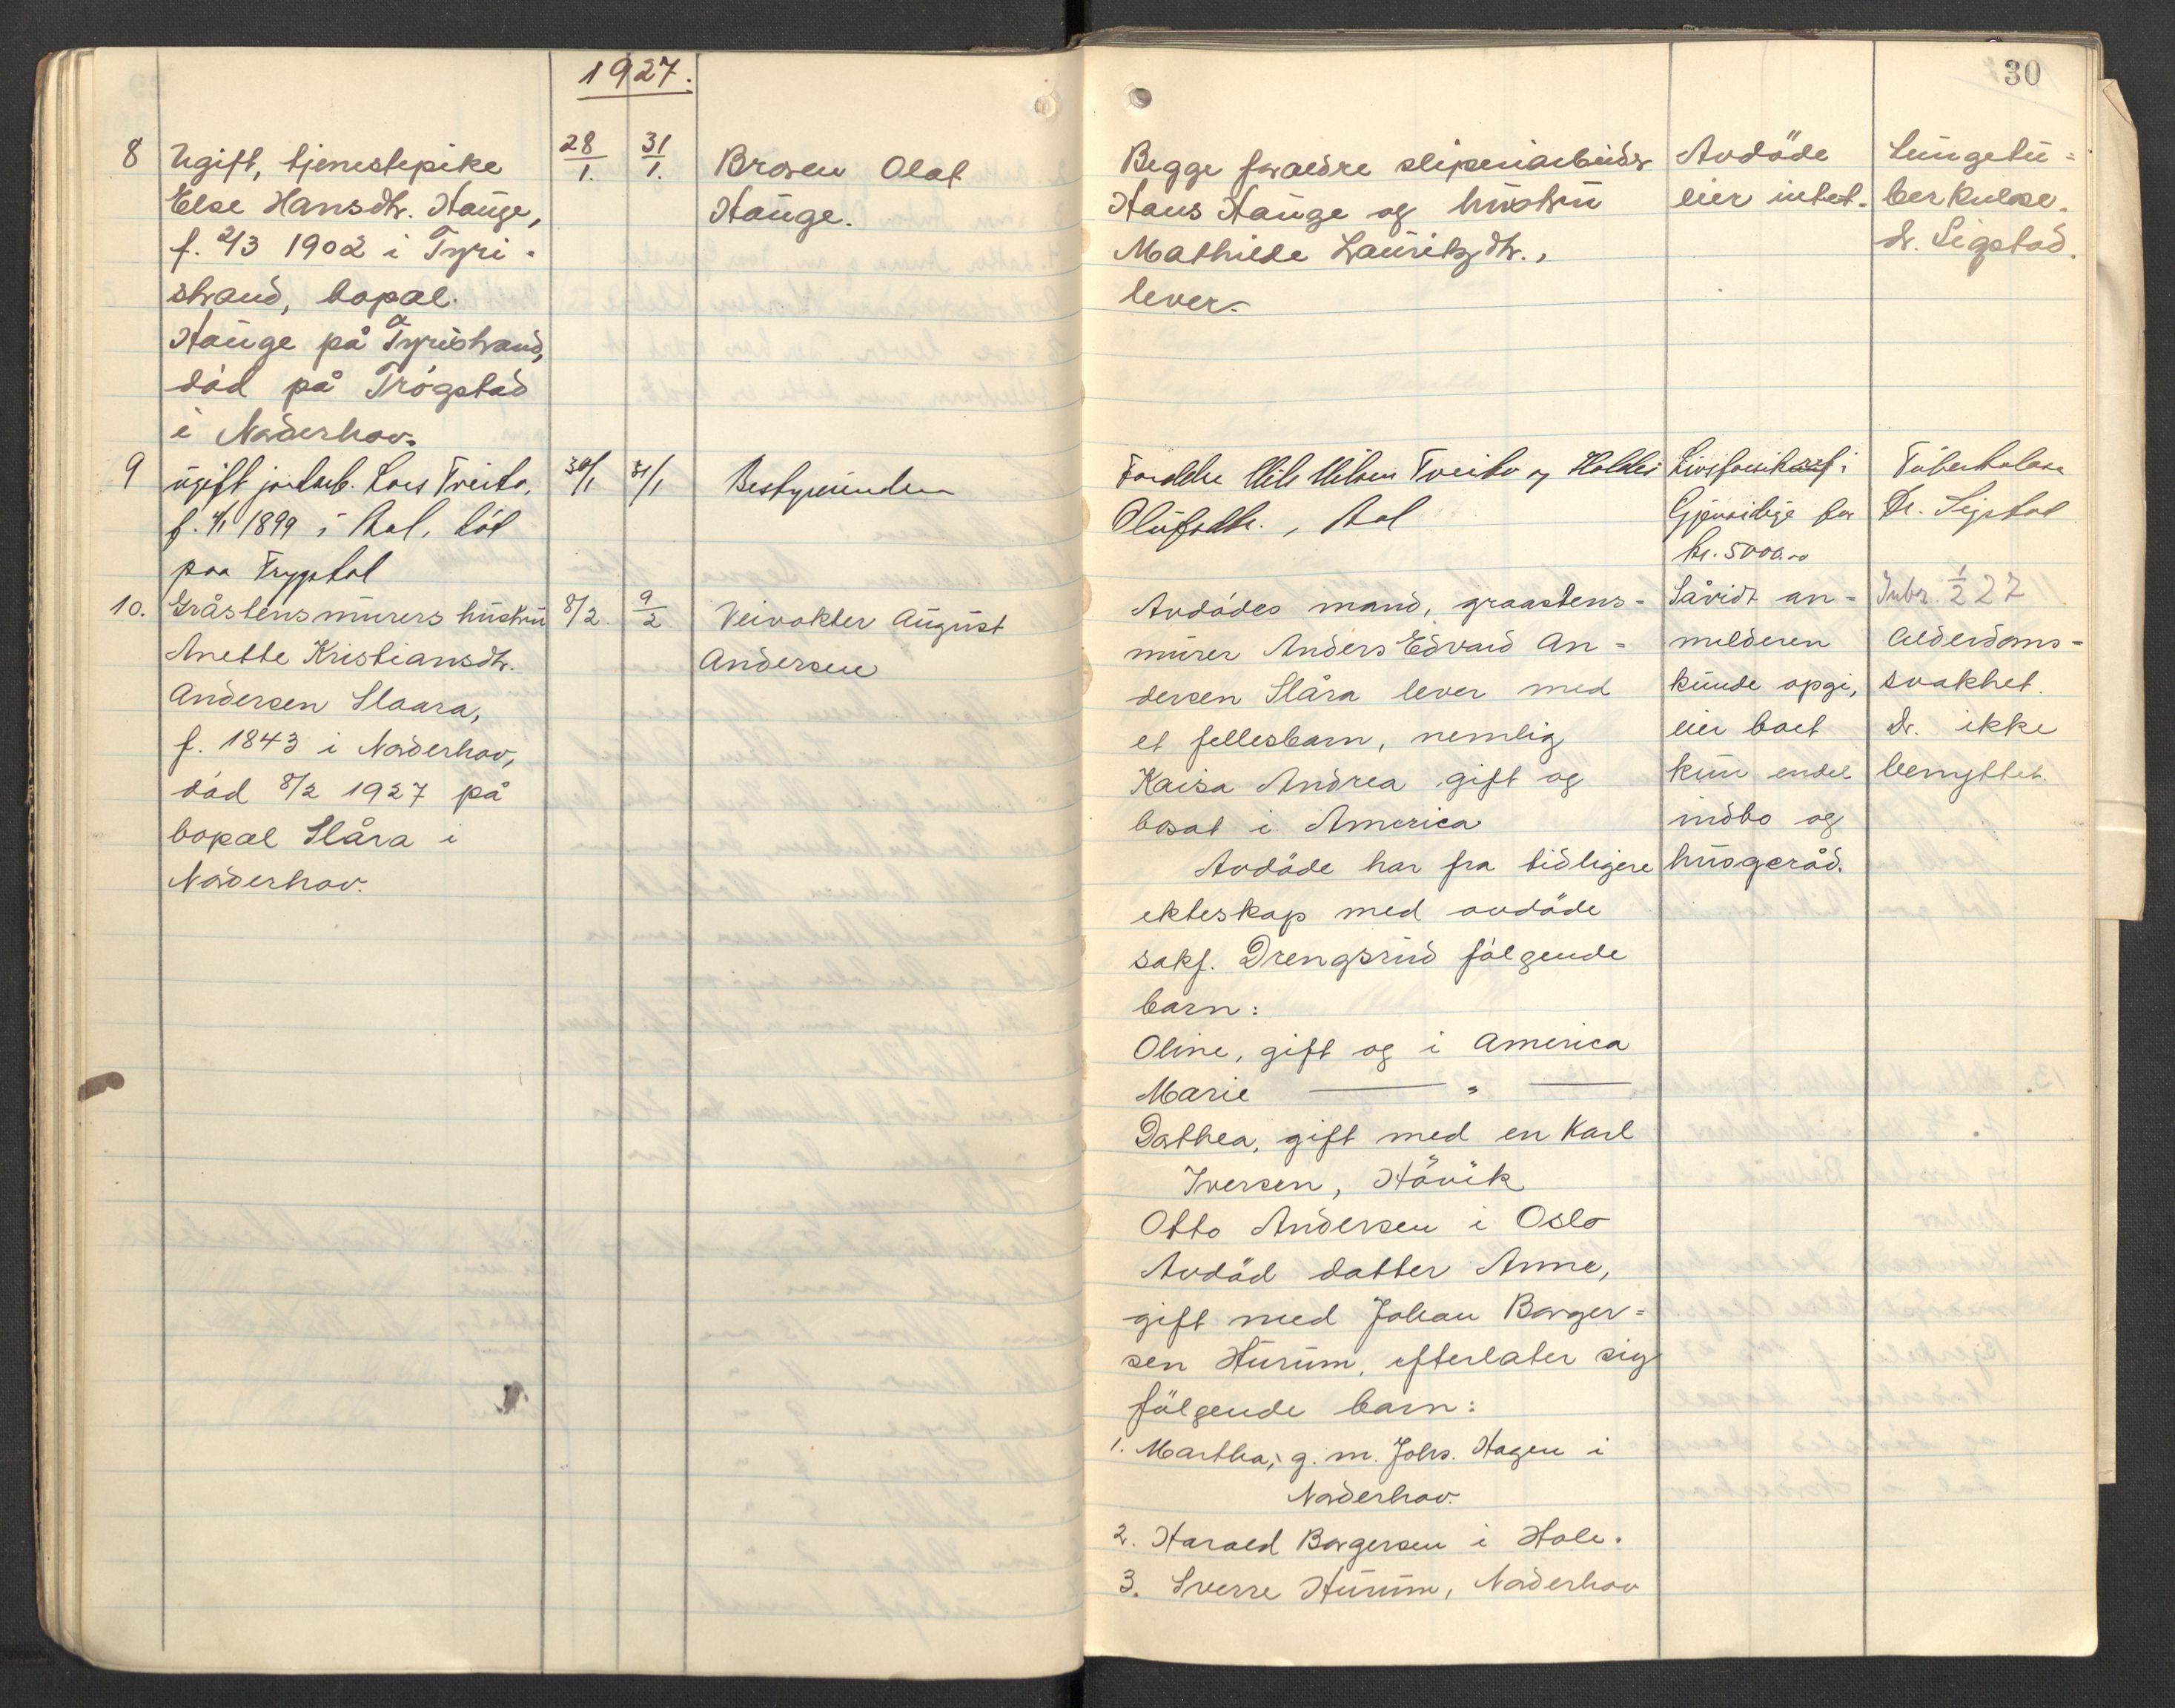 1927.
30
8 Ugift, tjenestepike
Else Hansdtr. Hauge,
f. 2/3 1902 i Tyri-
strand, bopæl
Hauge på Tyristrand,
död på Trögstad
i Norderhov.
28/1. 31/1.
Broren Olaf
Hauge.
Begge foraeldre sliperiarbeider
Hans Hauge og hustru
Mathilde Lauritzdtr.,
lever.
Avdöde
eier intet.
Lungetu=
berkulose.
dr. Sigstad.
9 ugift jordarb. Lars Tveito,
f. 4/1 1899 i Aal, död
paa Trygstad
30/1 31/1
Bestyrerinden
Foreldre Nils Nilsen Tveito og
Olufsdtr., Aal
Gjensidige for
kr. 5000.00
Tuberkulose
Dr. Sigstad
10. Gråstensmurers hustru
Anette Kristiansdtr.
Andersen Slaara,
f. 1843 i Norderhov,
död 8/2 1927 på
bopæl Slåra i
Norderhov.
8/2. 9/2
Veivokter August
Andersen
Avdödes mand, graastens=
murer Anders Edvard An=
dersen Slåra lever med
et fellesbarn, nemlig
Kaisa Andrea gift og
bosat i America
Avdöde har fra tidligere
ekteskap med avdöde
sakf. Drengsrud fölgende
barn:
Oline, gift og i America
Marie — " —
Dorthea, gift med en Karl
Iversen, Hövik
Otto Andersen i Oslo
Avdöd datter Anne,
gift med Johan Borger=
sen Hurum, efterlater sig
fölgende barn:
1. Martha, g. m. Johs. Hagen i
Norderhov.
2. Harald Borgersen i Hole.
3. Sverre Hurum, Norderhov
Såvidt an=
melderen
kunde opgi,
eier boet
kun endel
indbo og
husgeråd.
Inbr. 1/2 27
Alderdoms=
svakhet.
dr. ikke
benyttet.